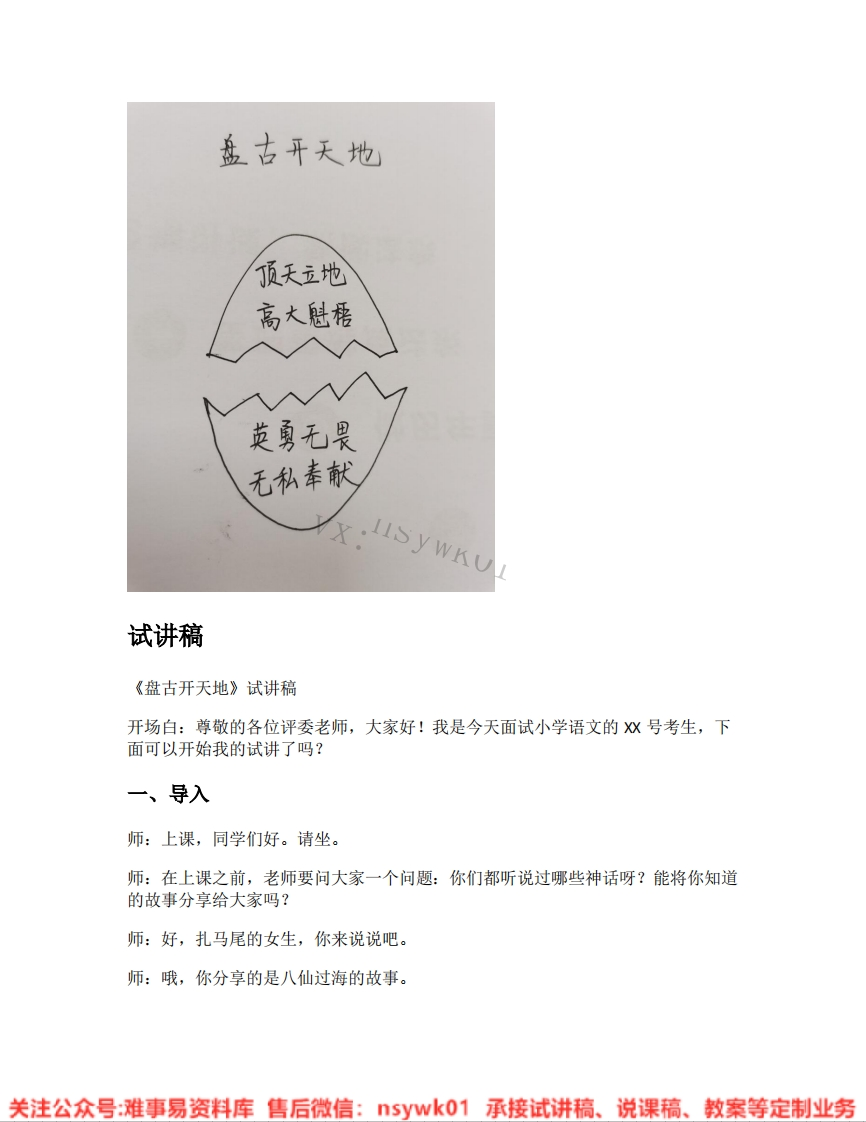 盘古开天地
顶天立地
高大魁梧
英勇无畏
无私奉献
VX:nsywk01
试讲稿
《盘古开天地》试讲稿
开场白：尊敬的各位评委老师，大家好！我是今天面试小学语文的 XX 号考生，下
面可以开始我的试讲了吗？
一、导入
师：上课，同学们好。请坐。
师：在上课之前，老师要问大家一个问题：你们都听说过哪些神话呀？能将你知道
的故事分享给大家吗？
师：好，扎马尾的女生，你来说说吧。
师：哦，你分享的是八仙过海的故事。
关注公众号:难事易资料库 售后微信：nsywk01 承接试讲稿、说课稿、教案等定制业务